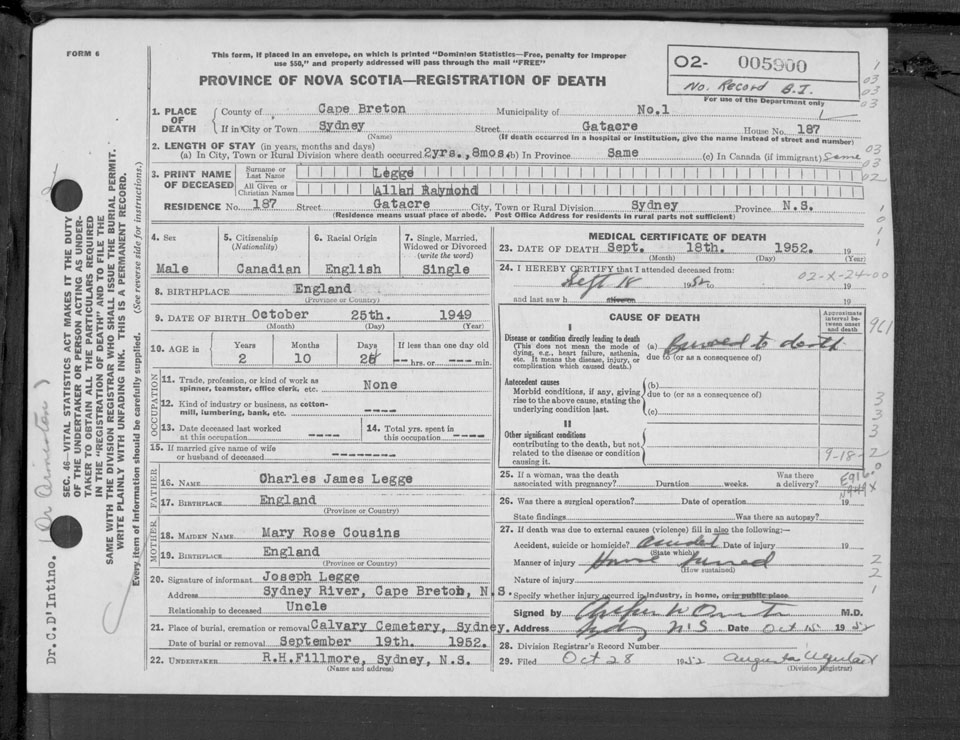 FORM 6
This form, if placed in an envelope, on which is printed "Dominion Statistics—Free, penalty for improper
use $50," and properly addressed will pass through the mail "FREE"
PROVINCE OF NOVA SCOTIA—REGISTRATION OF DEATH
02- 005900
No. Record B.I.
For use of the Department only
1. PLACE OF DEATH
County of Cape Breton Municipality of No.1
If in City or Town Sydney Street Gatacre House No. 187
(Name) (If death occurred in a hospital or institution, give the name instead of street and number)
2. LENGTH OF STAY (in years, months and days)
(a) In City, Town or Rural Division where death occurred 2yrs.,8mos. (b) In Province Same (c) In Canada (if immigrant) Same
3. PRINT NAME OF DECEASED
Surname or Last Name Legge
All Given or Christian Names Allan Raymond
RESIDENCE No. 187 Street Gatacre City, Town or Rural Division Sydney Province N.S.
(Residence means usual place of abode. Post Office Address for residents in rural parts not sufficient)
4. Sex Male
5. Citizenship (Nationality) Canadian
6. Racial Origin English
7. Single, Married, Widowed or Divorced (write the word) Single
8. BIRTHPLACE England
(Province or Country)
9. DATE OF BIRTH October 25th. 1949
(Month) (Day) (Year)
10. AGE in Years Months Days If less than one day old
2 10 hrs. or min.
OCCUPATION
11. Trade, profession, or kind of work as spinner, teamster, office clerk, etc. None
12. Kind of industry or business, as cotton-mill, lumbering, bank, etc. ----
13. Date deceased last worked at this occupation ----
14. Total yrs. spent in this occupation ----
15. If married give name of wife or husband of deceased --------
FATHER
16. NAME Charles James Legge
17. BIRTHPLACE England
(Province or Country)
MOTHER
18. MAIDEN NAME Mary Rose Cousins
19. BIRTHPLACE England
(Province or Country)
20. Signature of informant Joseph Legge
Address Sydney River, Cape Breton, N.S.
Relationship to deceased Uncle
21. Place of burial, cremation or removal Calvary Cemetery, Sydney.
Date of burial or removal September 19th. 1952.
22. UNDERTAKER R.H.Fillmore, Sydney, N.S.
(Name and address)
MEDICAL CERTIFICATE OF DEATH
23. DATE OF DEATH Sept. 18th. 1952. 19
(Month) (Day) (Year)
24. I HEREBY CERTIFY that I attended deceased from:
Sept 18 1952 to 19
02-X-24-00
and last saw h 19
CAUSE OF DEATH
Approximate interval between onset and death
I
Disease or condition directly leading to death
(This does not mean the mode of dying, e.g., heart failure, asthenia, etc. It means the disease, injury, or complication which caused death.)
(a) burned to death
due to (or as a consequence of)
Antecedent causes
Morbid conditions, if any, giving rise to the above cause, stating the underlying condition last.
(b)
due to (or as a consequence of)
(c)
II
Other significant conditions
contributing to the death, but not related to the disease or condition causing it.
9-18-2
25. If a woman, was the death associated with pregnancy? Duration weeks. Was there a delivery?
E916
26. Was there a surgical operation? Date of operation 19
State findings Was there an autopsy?
27. If death was due to external causes (violence) fill in also the following:—
Accident, suicide or homicide? accident Date of injury 19
(State which)
Manner of injury House burned
(How sustained)
Nature of injury
Specify whether injury occurred in industry, in home, or in public place
Signed by M.D.
Address Sydney N.S Date Oct 15 1952
28. Division Registrar's Record Number
29. Filed Oct 28 1952 Augusta
(Division Registrar)
SEC. 46—VITAL STATISTICS ACT MAKES IT THE DUTY
OF THE UNDERTAKER OR PERSON ACTING AS UNDER-
TAKER TO OBTAIN ALL THE PARTICULARS REQUIRED
IN THE "REGISTRATION OF DEATH" AND TO FILE THE
SAME WITH THE DIVISION REGISTRAR WHO SHALL ISSUE THE BURIAL PERMIT.
WRITE PLAINLY WITH UNFADING INK. THIS IS A PERMANENT RECORD.
Every item of information should be carefully supplied. (See reverse side for instructions.)
Dr.C.D'Intino.